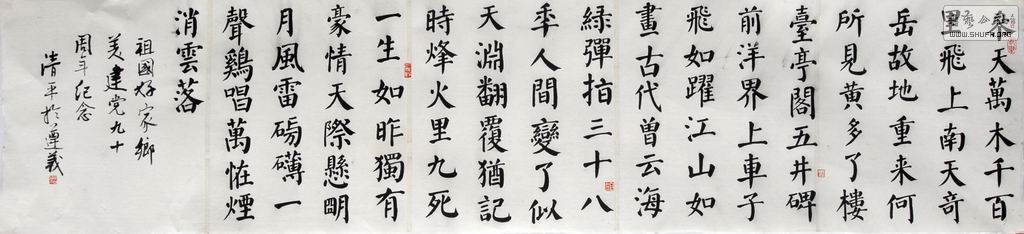 參天萬木千百
里飛上南天奇
岳故地重来何
所見黄多了樓
臺亭閣五井碑
前洋界上車子
飛如躍江山如
畫古代曾云海
緑彈指三十八
秊人間變了似
天淵翻覆猶記
時烽火里九死
一生如昨獨有
豪情天際懸眀
月風雷磅礴一
聲鷄唱萬恠煙
消雲落
祖國好家鄉
美建党九十
周年纪念
清平於遵義
WWW.SHUFA.ORG